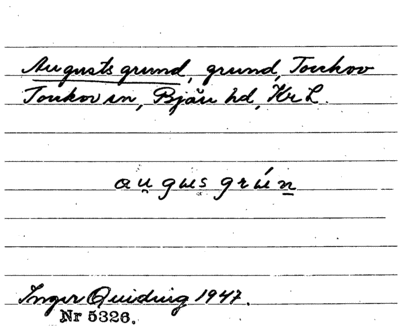 Augustsgrund, grund, Torhov
Torhov sn, Bjäre hd, Kr L.
au̯gu̯s grún
Inger Quiding 1947.
Nr 5326.